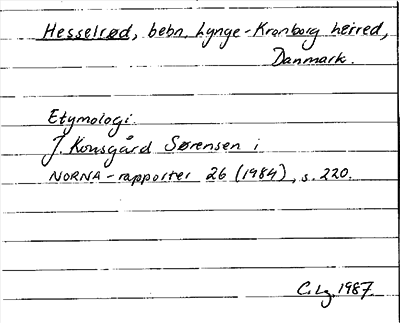 Hesselrød, bebn. Lynge-Kronborg herred,
Danmark.
Etymologi.
J. Kousgård Sørensen i
NORNA-rapporter 26 (1984), s. 220.
C.Lg. 1987.